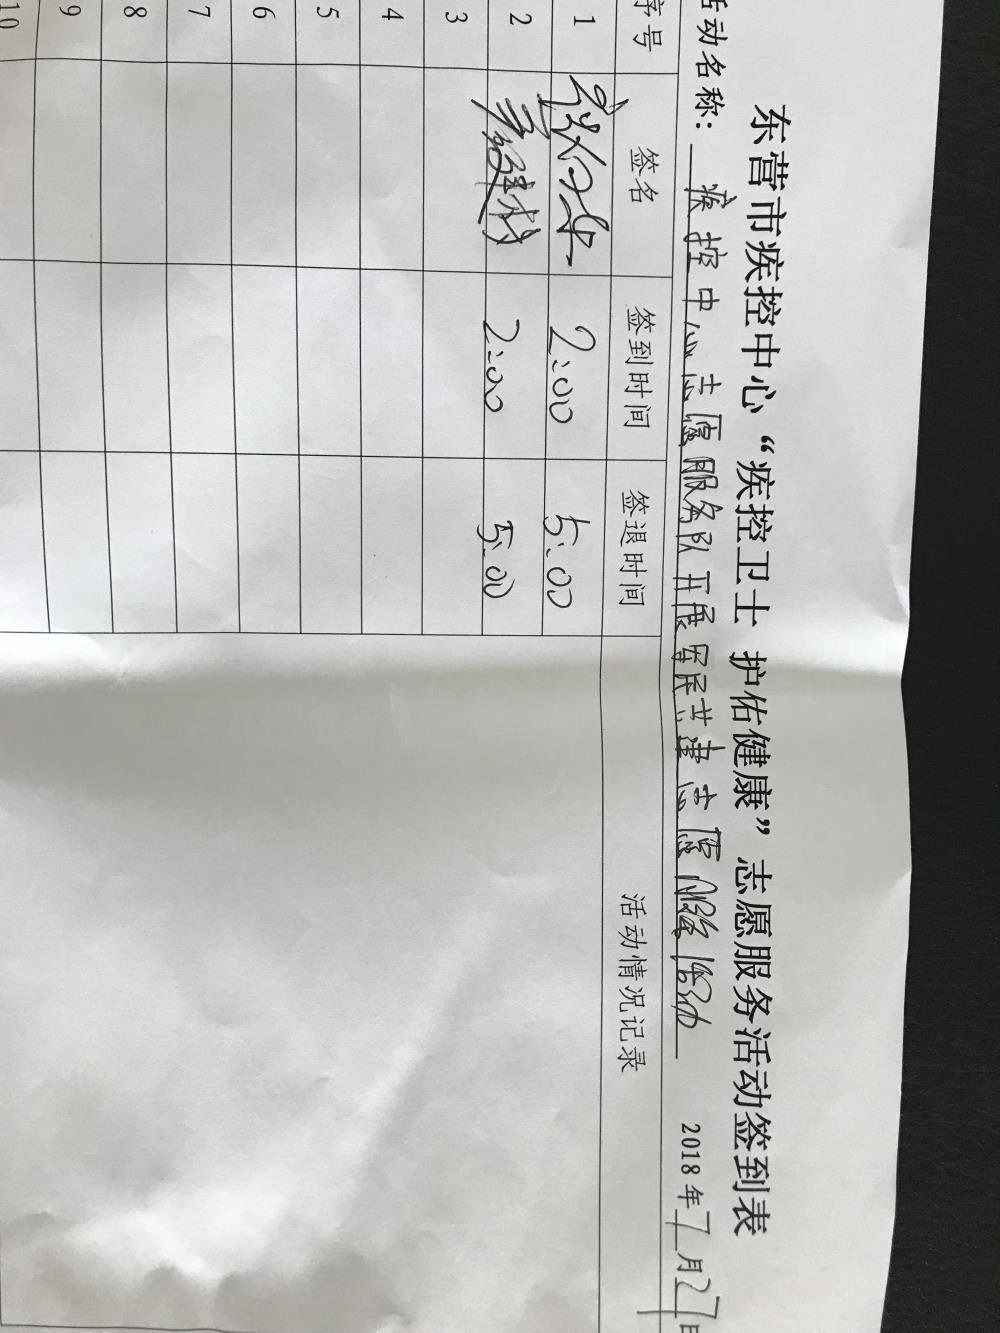 东营市疾控中心“疾控卫士 护佑健康”志愿服务活动签到表
活动名称: 疾控中心志愿服务队开展军民共建志愿服务活动 2018年7月27日
序号 签名 签到时间 签退时间 活动情况记录
1 2:00 5:00
2 2:00 5:00
3
4
5
6
7
8
9
10